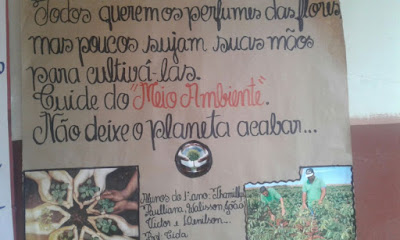 Todos queremos perfumes das flores,
mas poucos sujam suas mãos
para cultivá-las.
Cuide do "Meio Ambiente".
Não deixe o planeta acabar...
Alunos do 1º ano: Thamilly
Paulliana, Walisson, João
Victor e Wenilson...
Prof. Cida